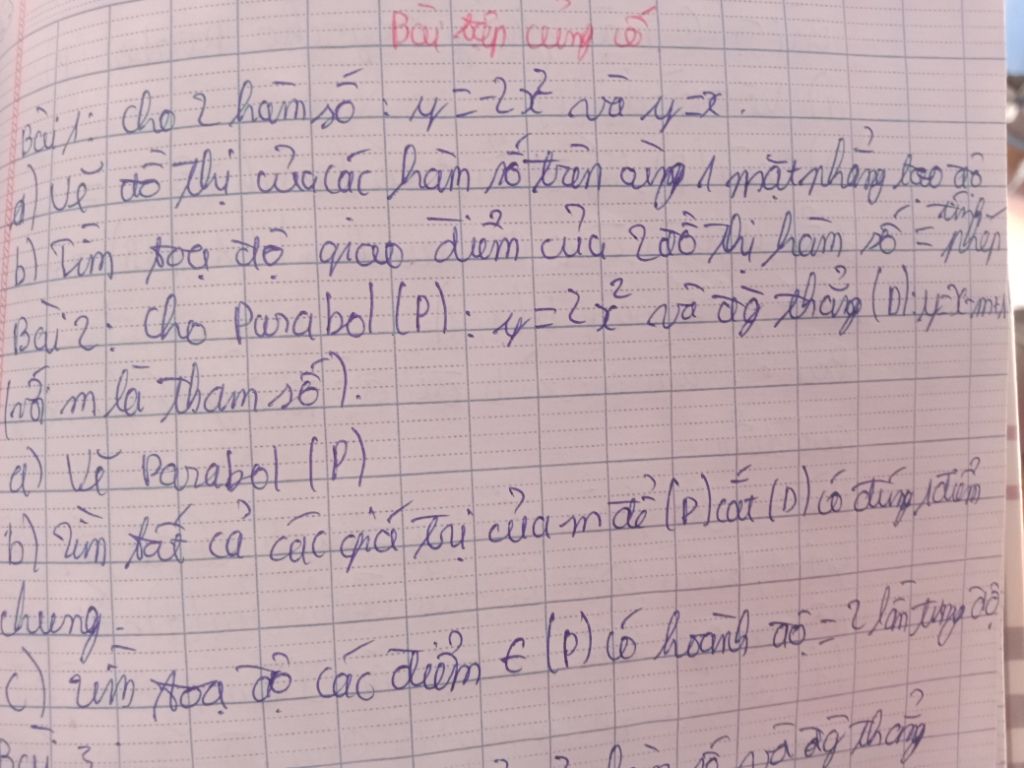 Bài tập củng cố
Bài 1: Cho 2 hàm số : y = -2x² và y = x.
a) Vẽ đồ thị của các hàm số trên cùng 1 mặt phẳng tọa độ
b) Tìm toạ độ giao điểm của 2 đồ thị hàm số = phép tính
Bài 2: Cho Parabol (P) : y = 2x² và đg thẳng (D): y = x - m + 1
(với m là tham số).
a) Vẽ Parabol (P)
b) Tìm tất cả các giá trị của m để (P) cắt (D) có đúng 1 điểm
chung.
c) Tìm toạ độ các điểm ∈ (P) có hoành độ = 2 lần tung độ
Bài 3
số và đg thẳng